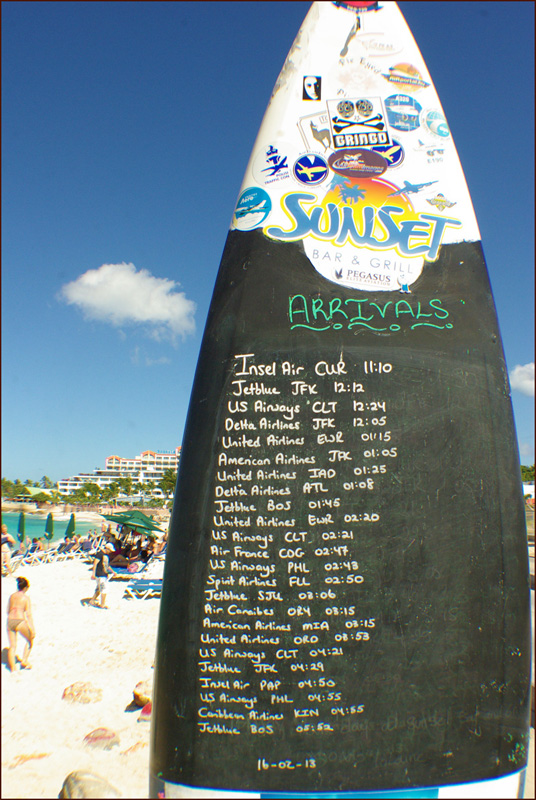 GRINGO
SUNSET
BAR & GRILL
PEGASUS
ARRIVALS
Insel Air CUR 11:10
Jetblue JFK 12:12
US Airways CLT 12:24
Delta Airlines JFK 12:05
United Airlines EWR 01:15
American Airlines JFK 01:05
United Airlines IAD 01:25
Delta Airlines ATL 01:08
Jetblue BOS 01:45
United Airlines EWR 02:20
US Airways CLT 02:21
Air France CDG 02:47
US Airways PHL 02:48
Spirit Airlines FLL 02:50
Jetblue SJU 03:06
Air Caraibes ORY 03:15
American Airlines MIA 03:15
United Airlines ORD 03:53
US Airways CLT 04:21
Jetblue JFK 04:29
Insel Air PAP 04:50
US Airways PHL 04:55
Caribbean Airlines KIN 04:55
Jetblue BOS 05:52
16-02-13